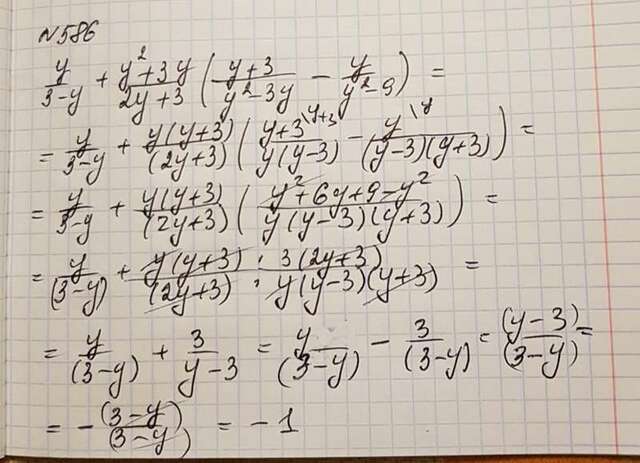 N586
y/(3-y) + (y²+3y)/(2y+3) ( (y+3)/(y²-3y) - y/(y²-9) ) =
= y/(3-y) + y(y+3)/(2y+3) ( (y+3\y+3)/(y(y-3)) - (y\y)/((y-3)(y+3)) ) =
= y/(3-y) + y(y+3)/(2y+3) ( (y²+6y+9-y²)/(y(y-3)(y+3)) ) =
= y/(3-y) + (y(y+3) · 3(2y+3))/((2y+3) · y(y-3)(y+3)) =
= y/(3-y) + 3/(y-3) = y/(3-y) - 3/(3-y) = (y-3)/(3-y) =
= - (3-y)/(3-y) = -1